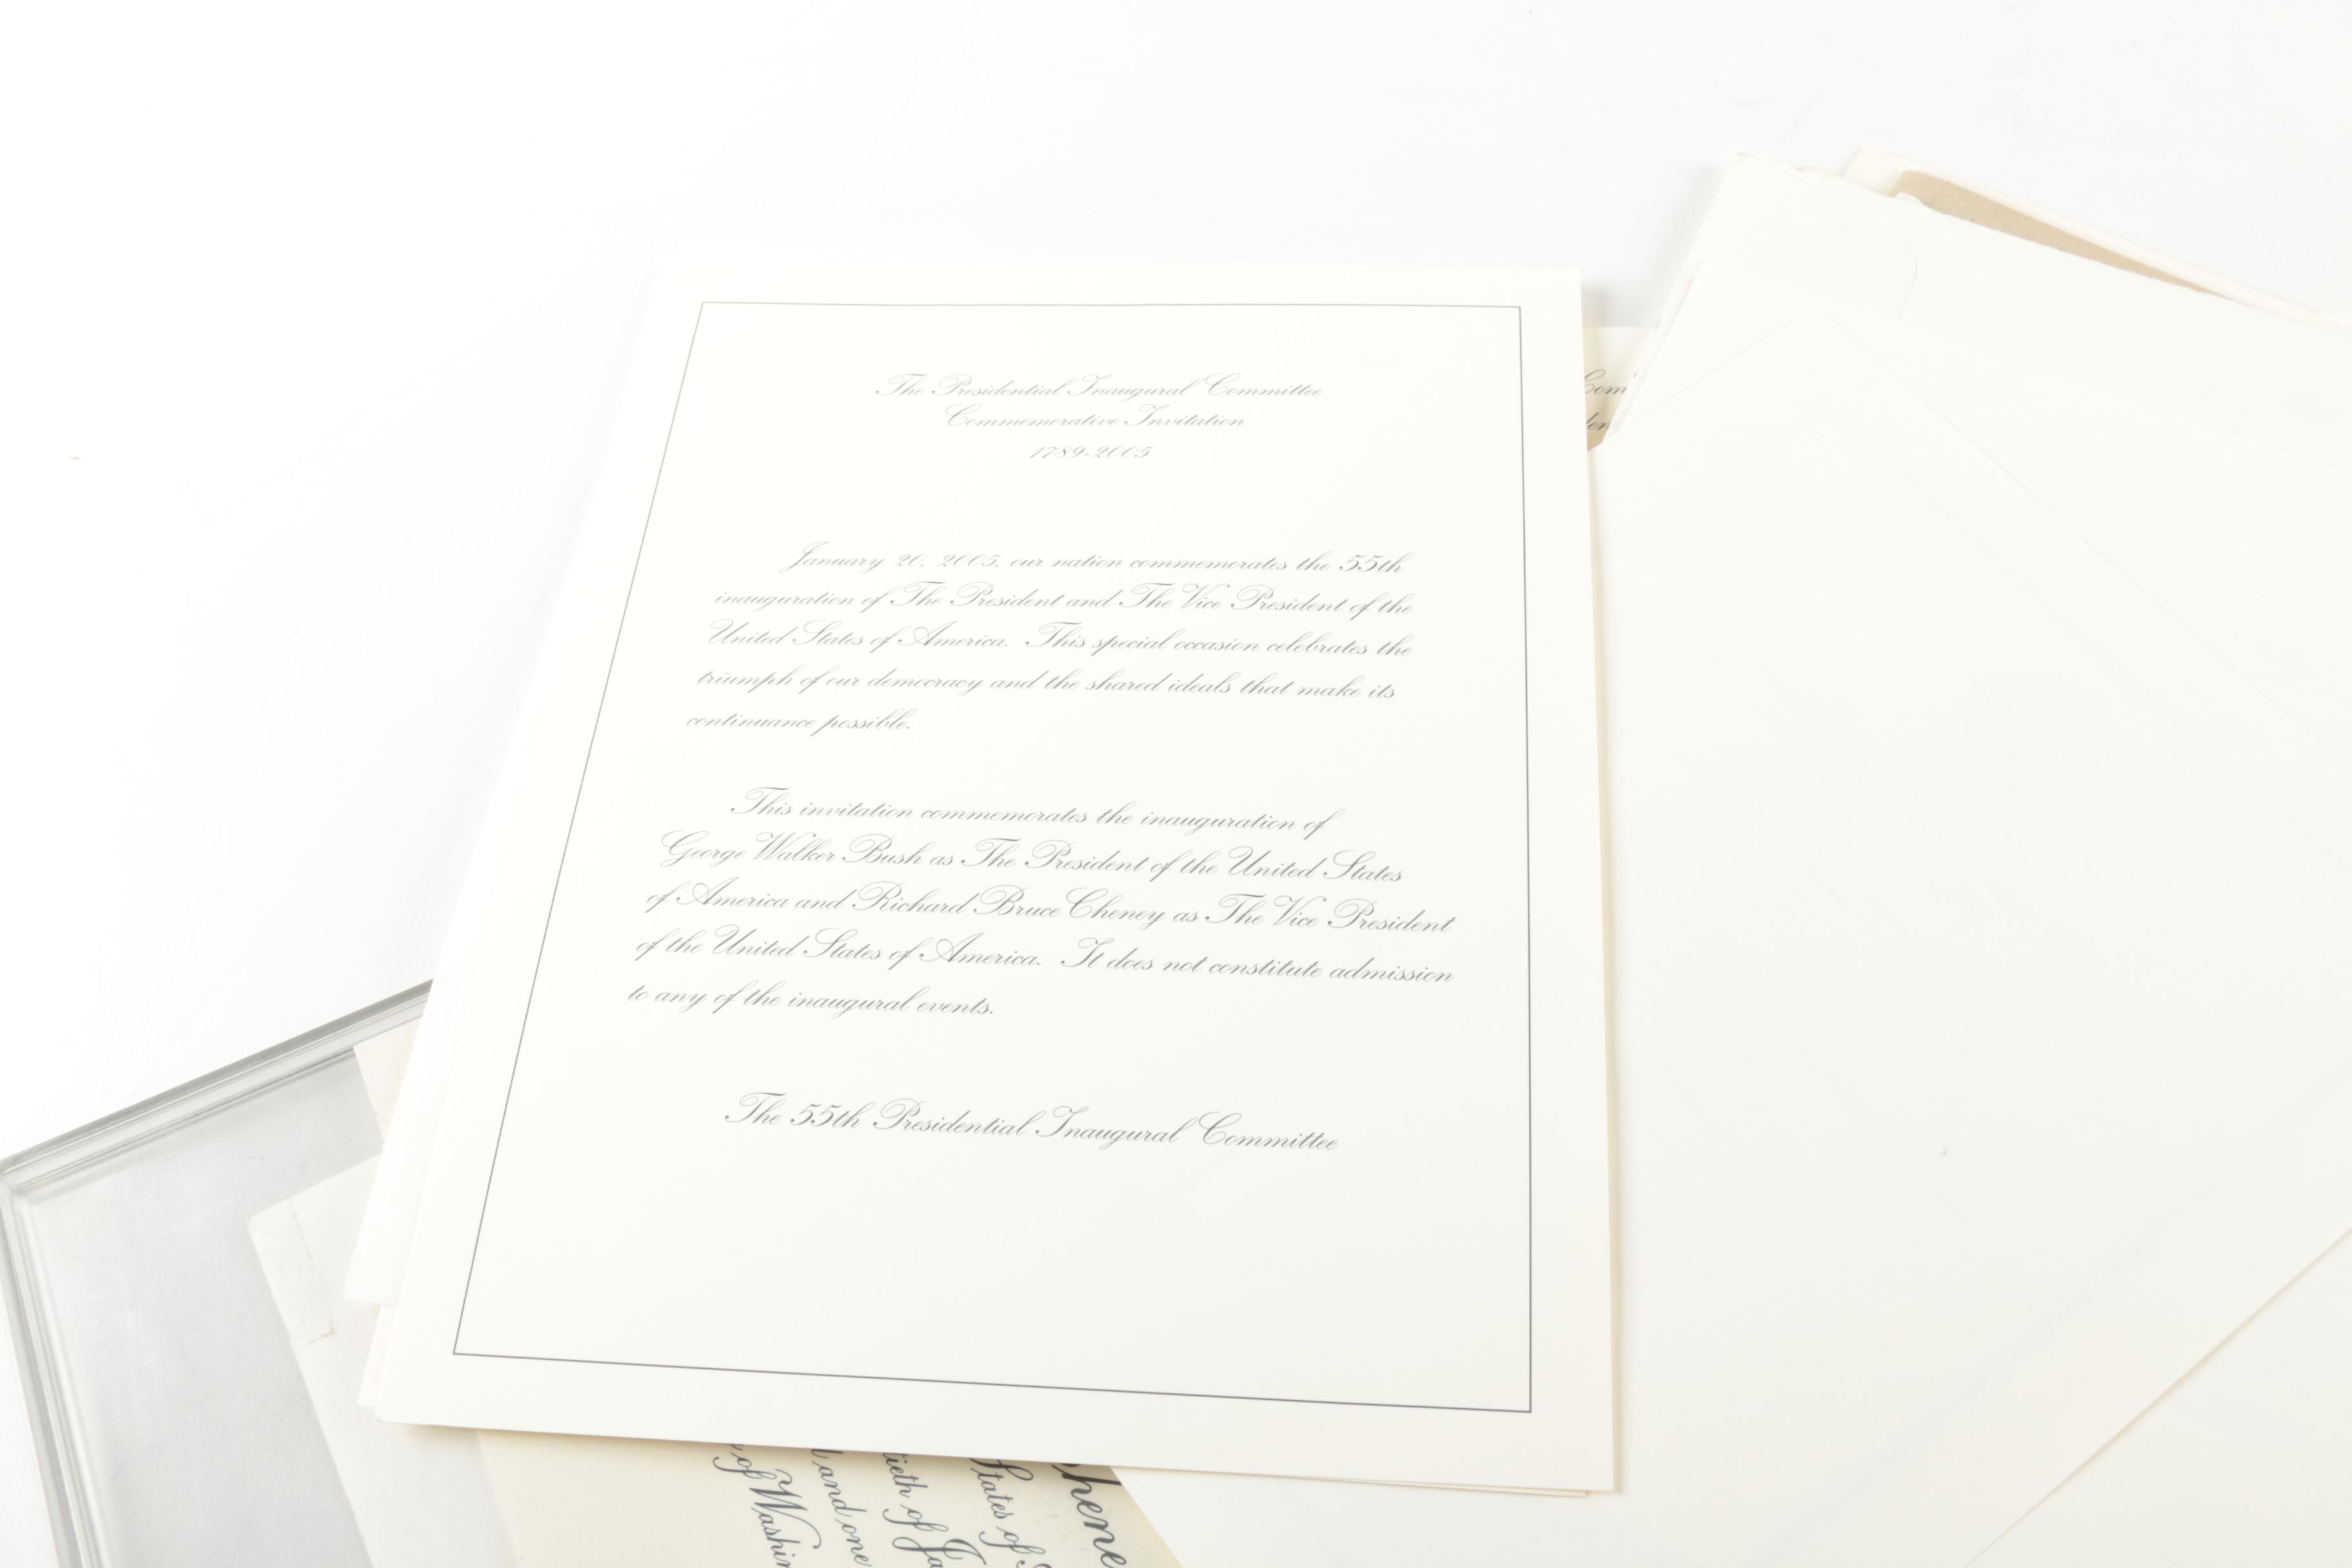 The Presidential Inaugural Committee
Commemorative Invitation
1789-2005
January 20, 2005, our nation commemorates the 55th
inauguration of The President and The Vice President of the
United States of America. This special occasion celebrates the
triumph of our democracy and the shared ideals that make its
continuance possible.
This invitation commemorates the inauguration of
George Walker Bush as The President of the United States
of America and Richard Bruce Cheney as The Vice President
of the United States of America. It does not constitute admission
to any of the inaugural events.
The 55th Presidential Inaugural Committee
States of
of
and one
of